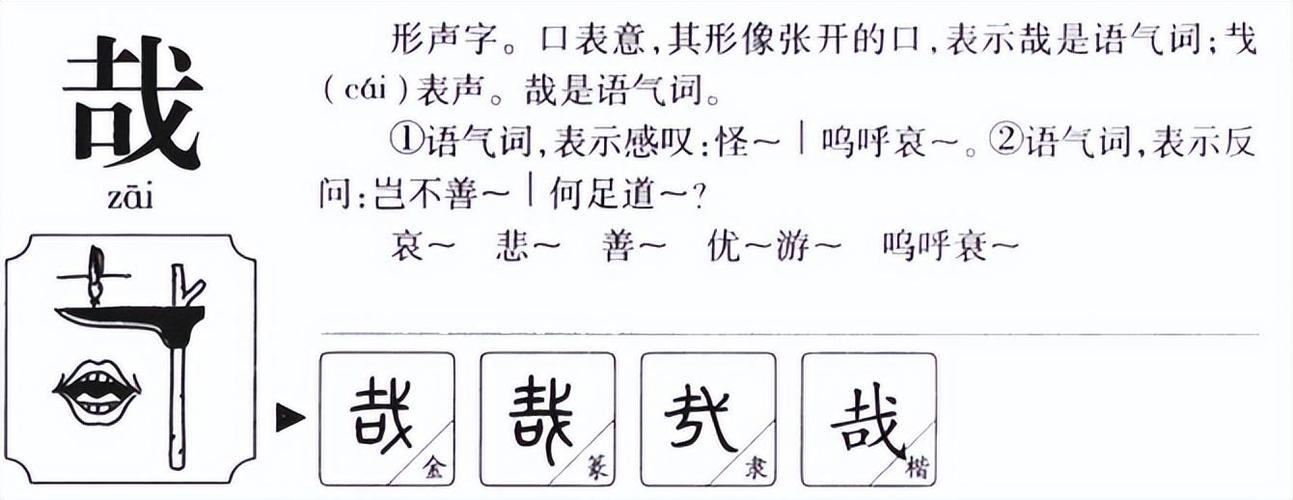 哉
zāi
形声字。口表意,其形像张开的口,表示哉是语气词;𢦏
(cái)表声。哉是语气词。
①语气词,表示感叹:怪～｜呜呼哀～。②语气词,表示反
问:岂不善～｜何足道～?
哀～ 悲～ 善～ 优～游～ 呜呼衰～
哉 金 哉 篆 哉 隶 哉 楷